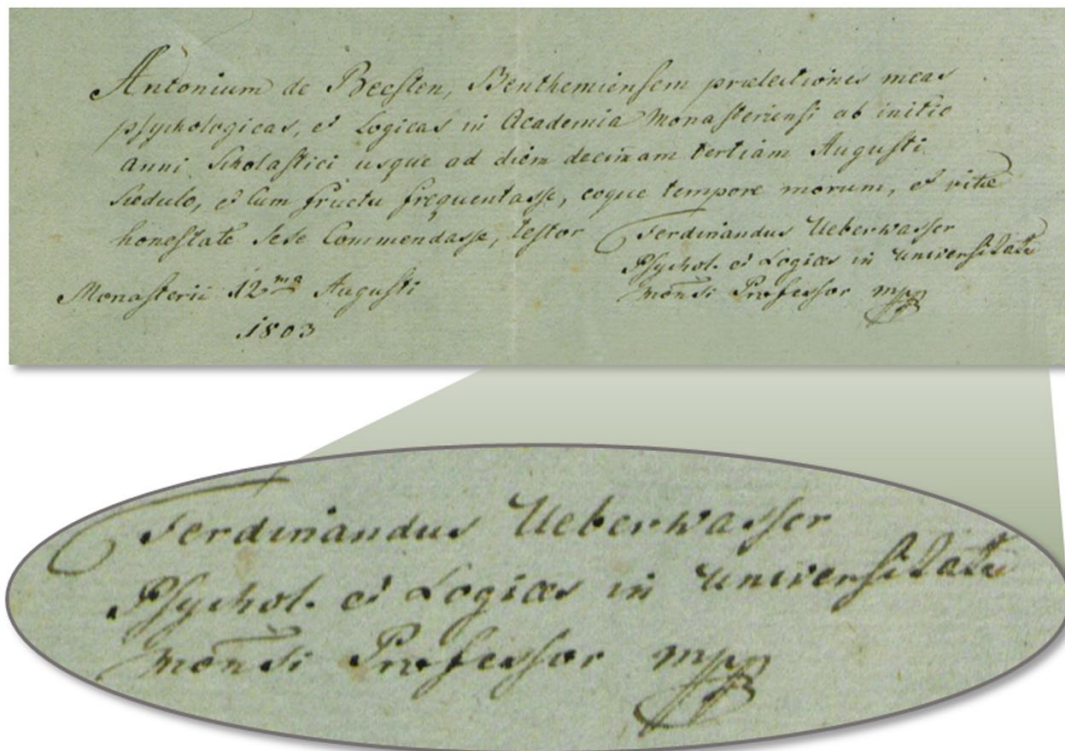 Antonium de Beesten, Benthemiensem prælectiones meas
psychologicas, et Logicas in Academia Monasteriensi ab initio
anni Scholastici usque ad diem decimam tertiam Augusti
Sedulo, et cum fructu frequentasse, eoque tempore morum, et vitæ
honestate sese Commendasse, testor
Ferdinandus Ueberwasser
Psychol. et Logices in universitate
monsi Professor mpp
Monasterii 12ma Augusti
1803
Ferdinandus Ueberwasser
Psychol. et Logices in universitate
monsi Professor mpp